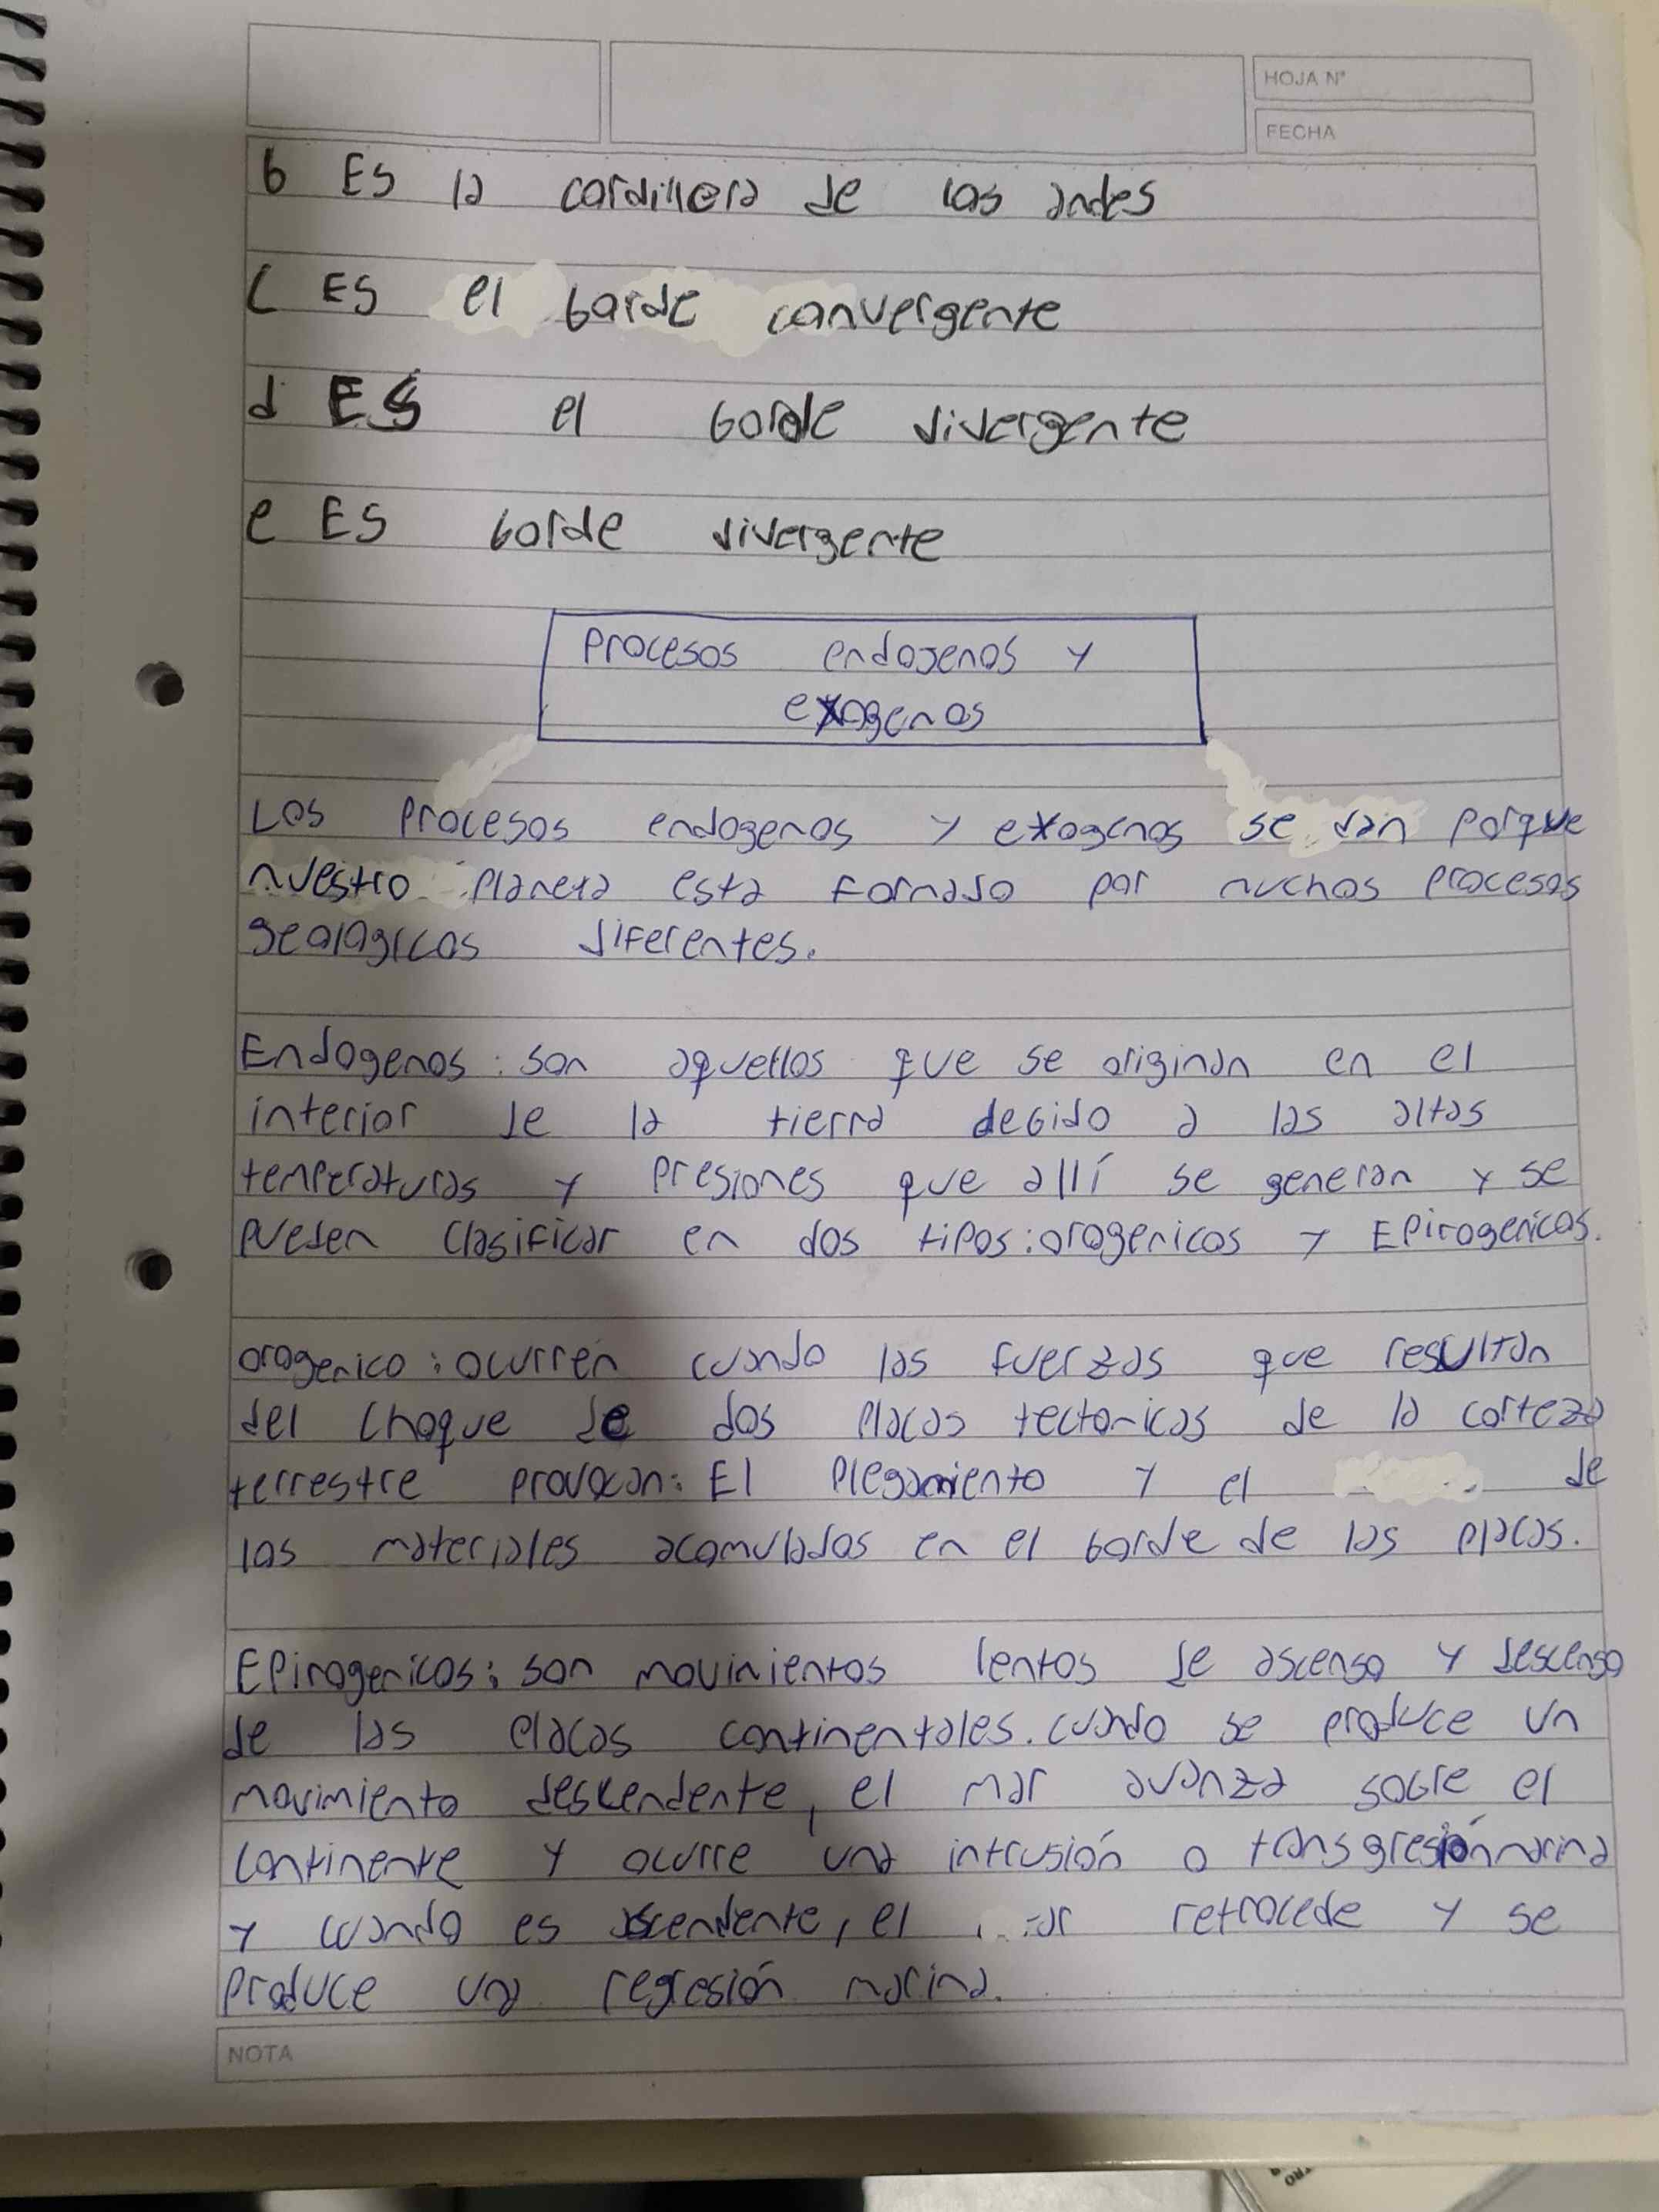 HOJA N°
FECHA
b Es la cordillera de los andes
C ES el borde convergente
d ES el borde divergente
e ES borde divergente
Procesos endogenos y
exogenos
Los procesos endogenos y exogenos se dan porque
nuestro planeta esta formado por muchos procesos
geologicos diferentes.
Endogenos: son aquellos que se originan en el
interior de la tierra debido a las altas
temperaturas y presiones que allí se generan y se
pueden clasificar en dos tipos: orogenicos y Epirogenicos.
orogenico: ocurren cuando las fuerzas que resultan
del choque de dos placas tectonicas de la corteza
terrestre provocan: El plegamiento y el de
los materiales acomulados en el borde de las placas.
Epirogenicos: son movimientos lentos de ascenso y descenso
de las placas continentales. cuando se produce un
movimiento descendente, el mar avanza sobre el
continente y ocurre una intrusión o transgresión marina
y cuando es ascendente, el retrocede y se
produce una regresión marina.
NOTA